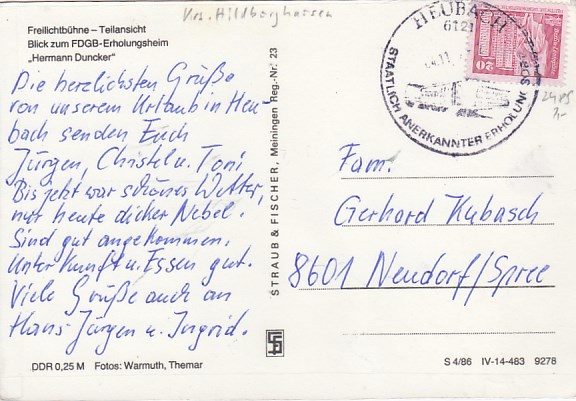 Krs. Hildburghausen
Freilichtbühne – Teilansicht
Blick zum FDGB-Erholungsheim
„Hermann Duncker"
Die herzlichsten Grüße
von unserem Urlaub in Heu-
bach senden Euch
Jürgen, Christel u. Toni
Bis jetzt war schönes Wetter,
nur heute dicker Nebel.
Sind gut angekommen.
Unterkunft u. Essen gut.
Viele Grüße auch an
Hans-Jürgen u. Ingrid.
DDR 0,25 M Fotos: Warmuth, Themar
STRAUB & FISCHER, Meiningen Reg.-Nr. 23
HEUBACH
6121
STAATLICH ANERKANNTER ERHOLUNGSORT
20
Fam.
Gerhard Kubasch
8601 Neudorf/Spree
S 4/86 IV-14-483 9278